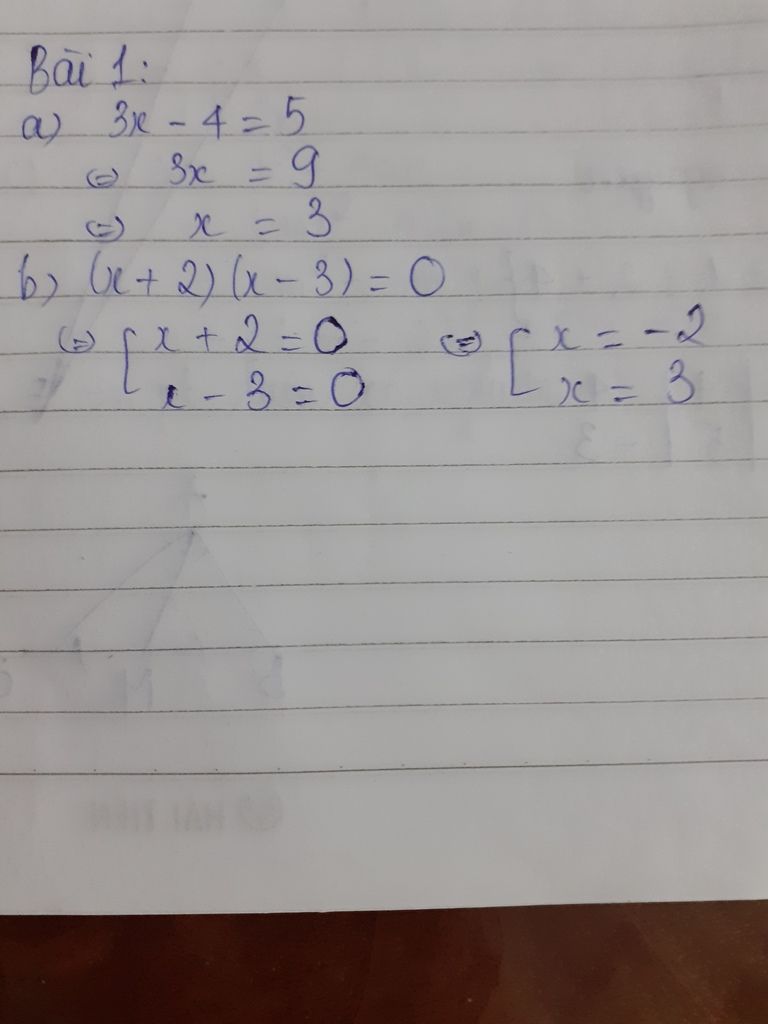 Bài 1:
a) 3x - 4 = 5
⇔ 3x = 9
⇔ x = 3
b) (x + 2)(x - 3) = 0
⇔ [ x + 2 = 0 ⇔ [ x = -2
x - 3 = 0 x = 3